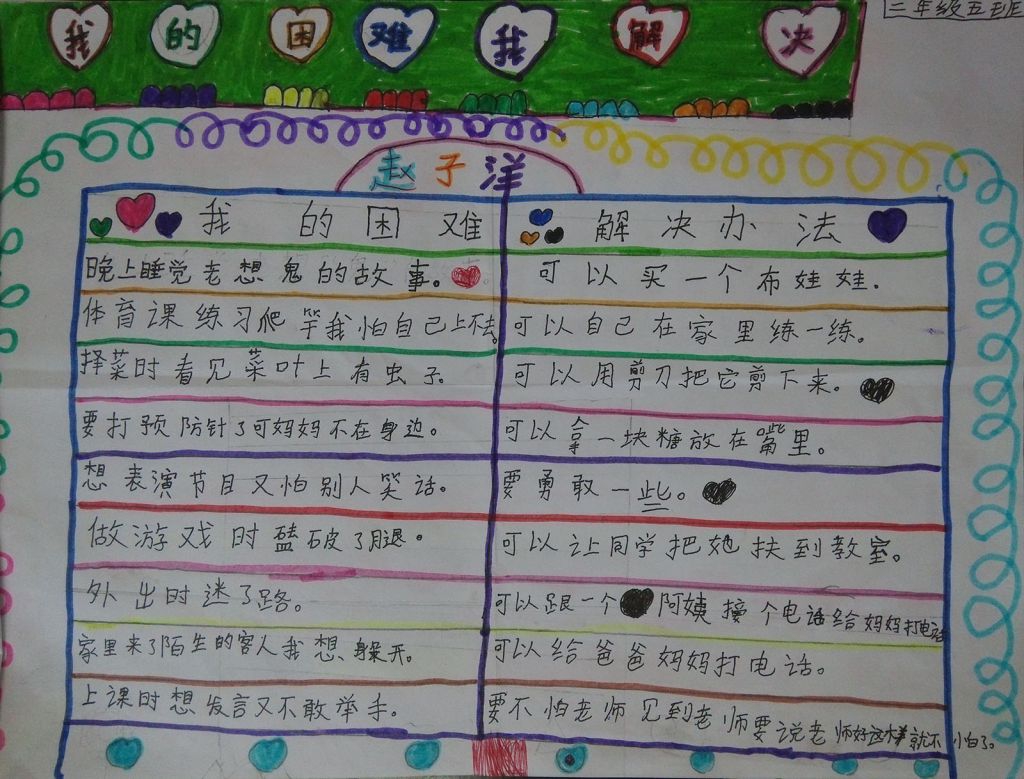 二年级五班
我的困难我解决
赵子洋
我的困难 解决办法
晚上睡觉老想鬼的故事。 可以买一个布娃娃.
体育课练习爬竿我怕自己上不去 可以自己在家里练一练。
择菜时看见菜叶上有虫子. 可以用剪刀把它剪下来.
要打预防针了可妈妈不在身边。 可以拿一块糖放在嘴里。
想表演节目又怕别人笑话. 要勇敢一些。
做游戏时磕破了腿。 可以让同学把她扶到教室。
外出时迷了路。 可以跟一个阿姨接个电话给妈妈打电话
家里来了陌生的客人我想躲开。 可以给爸爸妈妈打电话。
上课时想发言又不敢举手。 要不怕老师见到老师要说老师好这样就不小白了。